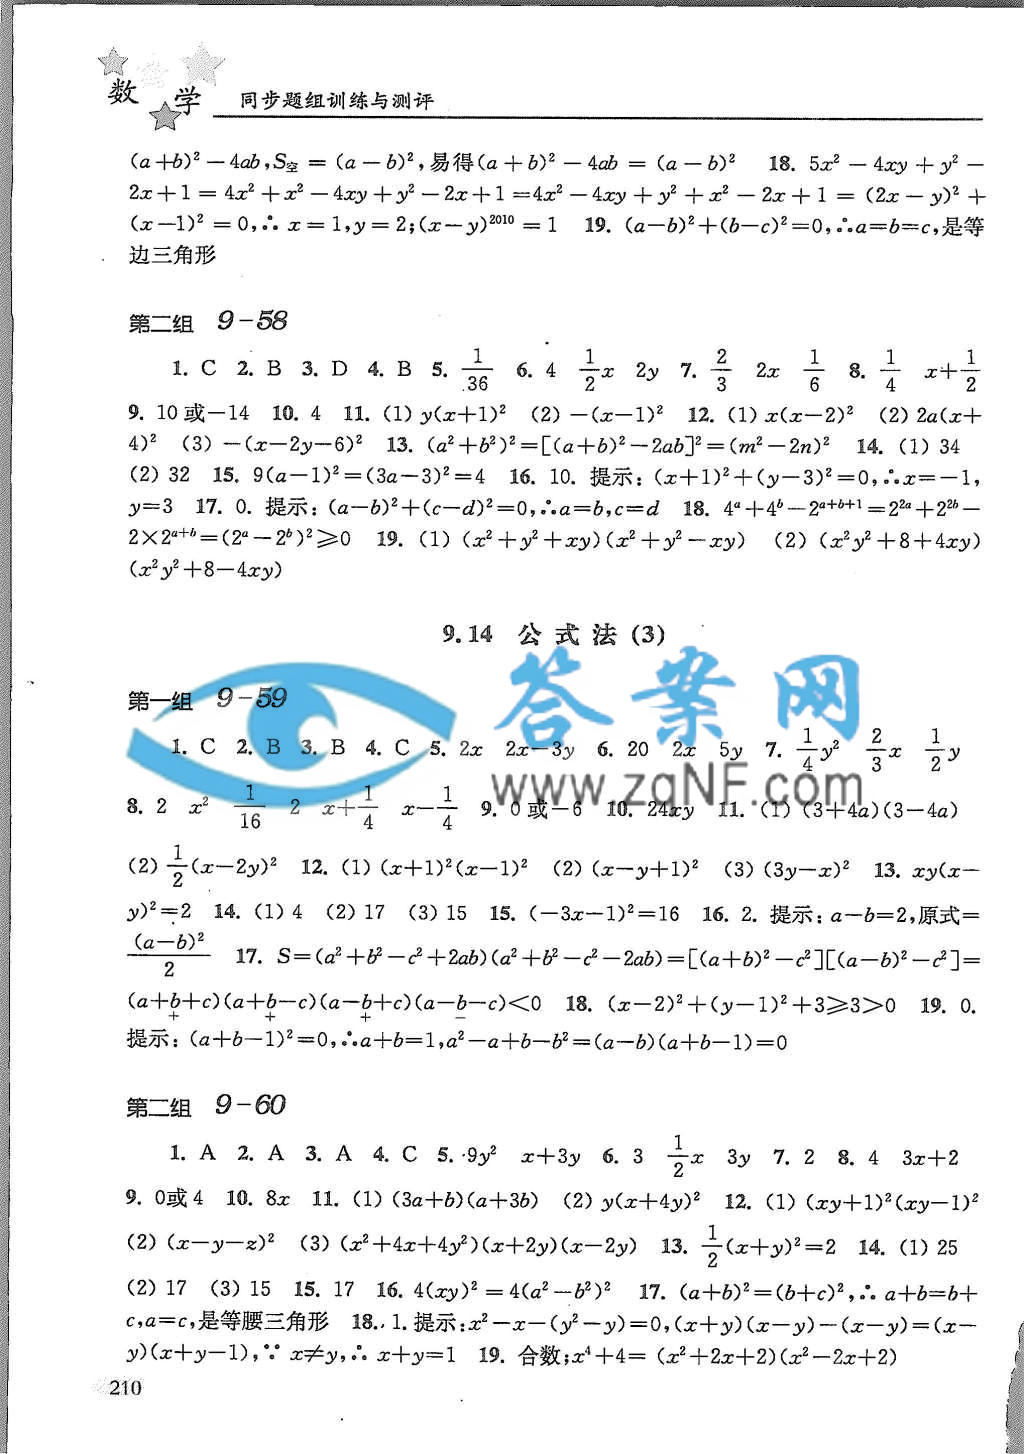 数学
同步题组训练与测评
(a+b)²－4ab,S空 = (a－b)²,易得(a+b)²－4ab = (a－b)² 18. 5x²－4xy+y²－
2x+1 = 4x²+x²－4xy+y²－2x+1 =4x²－4xy+y²+x²－2x+1 = (2x－y)²+
(x－1)² = 0,∴ x = 1,y = 2;(x－y)²⁰¹⁰ = 1 19. (a－b)²+(b－c)²=0,∴a=b=c,是等
边三角形
第二组 9-58
1. C 2. B 3. D 4. B 5. 1/36 6. 4 1/2x 2y 7. 2/3 2x 1/6 8. 1/4 x+1/2
9. 10或－14 10. 4 11. (1) y(x+1)² (2) －(x－1)² 12. (1) x(x－2)² (2) 2a(x+
4)² (3) －(x－2y－6)² 13. (a²+b²)²=[(a+b)²－2ab]²=(m²－2n)² 14. (1) 34
(2) 32 15. 9(a－1)²=(3a－3)²=4 16. 10. 提示: (x+1)²+(y－3)²=0,∴x=－1,
y=3 17. 0. 提示: (a－b)²+(c－d)²=0,∴a=b,c=d 18. 4ᵃ+4ᵇ－2ᵃ⁺ᵇ⁺¹=2²ᵃ+2²ᵇ－
2×2ᵃ⁺ᵇ=(2ᵃ－2ᵇ)²≥0 19. (1) (x²+y²+xy)(x²+y²－xy) (2) (x²y²+8+4xy)
(x²y²+8－4xy)
9.14 公式法(3)
第一组 9-59
1. C 2. B 3. B 4. C 5. 2x 2x－3y 6. 20 2x 5y 7. 1/4y² 2/3x 1/2y
8. 2 x² 1/16 2 x+1/4 x－1/4 9. 0或－6 10. 24xy 11. (1) (3+4a)(3－4a)
(2) 1/2(x－2y)² 12. (1) (x+1)²(x－1)² (2) (x－y+1)² (3) (3y－x)² 13. xy(x－
y)²=2 14. (1) 4 (2) 17 (3) 15 15. (－3x－1)²=16 16. 2. 提示: a－b=2,原式=
(a－b)²/2 17. S=(a²+b²－c²+2ab)(a²+b²－c²－2ab)=[(a+b)²－c²][(a－b)²－c²]=
(a+b+c)(a+b－c)(a－b+c)(a－b－c)<0 18. (x－2)²+(y－1)²+3≥3>0 19. 0.
+ + + －
提示: (a+b－1)²=0,∴a+b=1,a²－a+b－b²=(a－b)(a+b－1)=0
第二组 9-60
1. A 2. A 3. A 4. C 5. 9y² x+3y 6. 3 1/2x 3y 7. 2 8. 4 3x+2
9. 0或4 10. 8x 11. (1) (3a+b)(a+3b) (2) y(x+4y)² 12. (1) (xy+1)²(xy－1)²
(2) (x－y－z)² (3) (x²+4x+4y²)(x+2y)(x－2y) 13. 1/2(x+y)²=2 14. (1) 25
(2) 17 (3) 15 15. 17 16. 4(xy)² = 4(a²－b²)² 17. (a+b)²=(b+c)²,∴ a+b=b+
c,a=c,是等腰三角形 18. 1. 提示:x²－x－(y²－y)=0,(x+y)(x－y)－(x－y)=(x－
y)(x+y－1),∵ x≠y,∴ x+y=1 19. 合数;x⁴+4= (x²+2x+2)(x²－2x+2)
210
答案网
www.zqNF.com